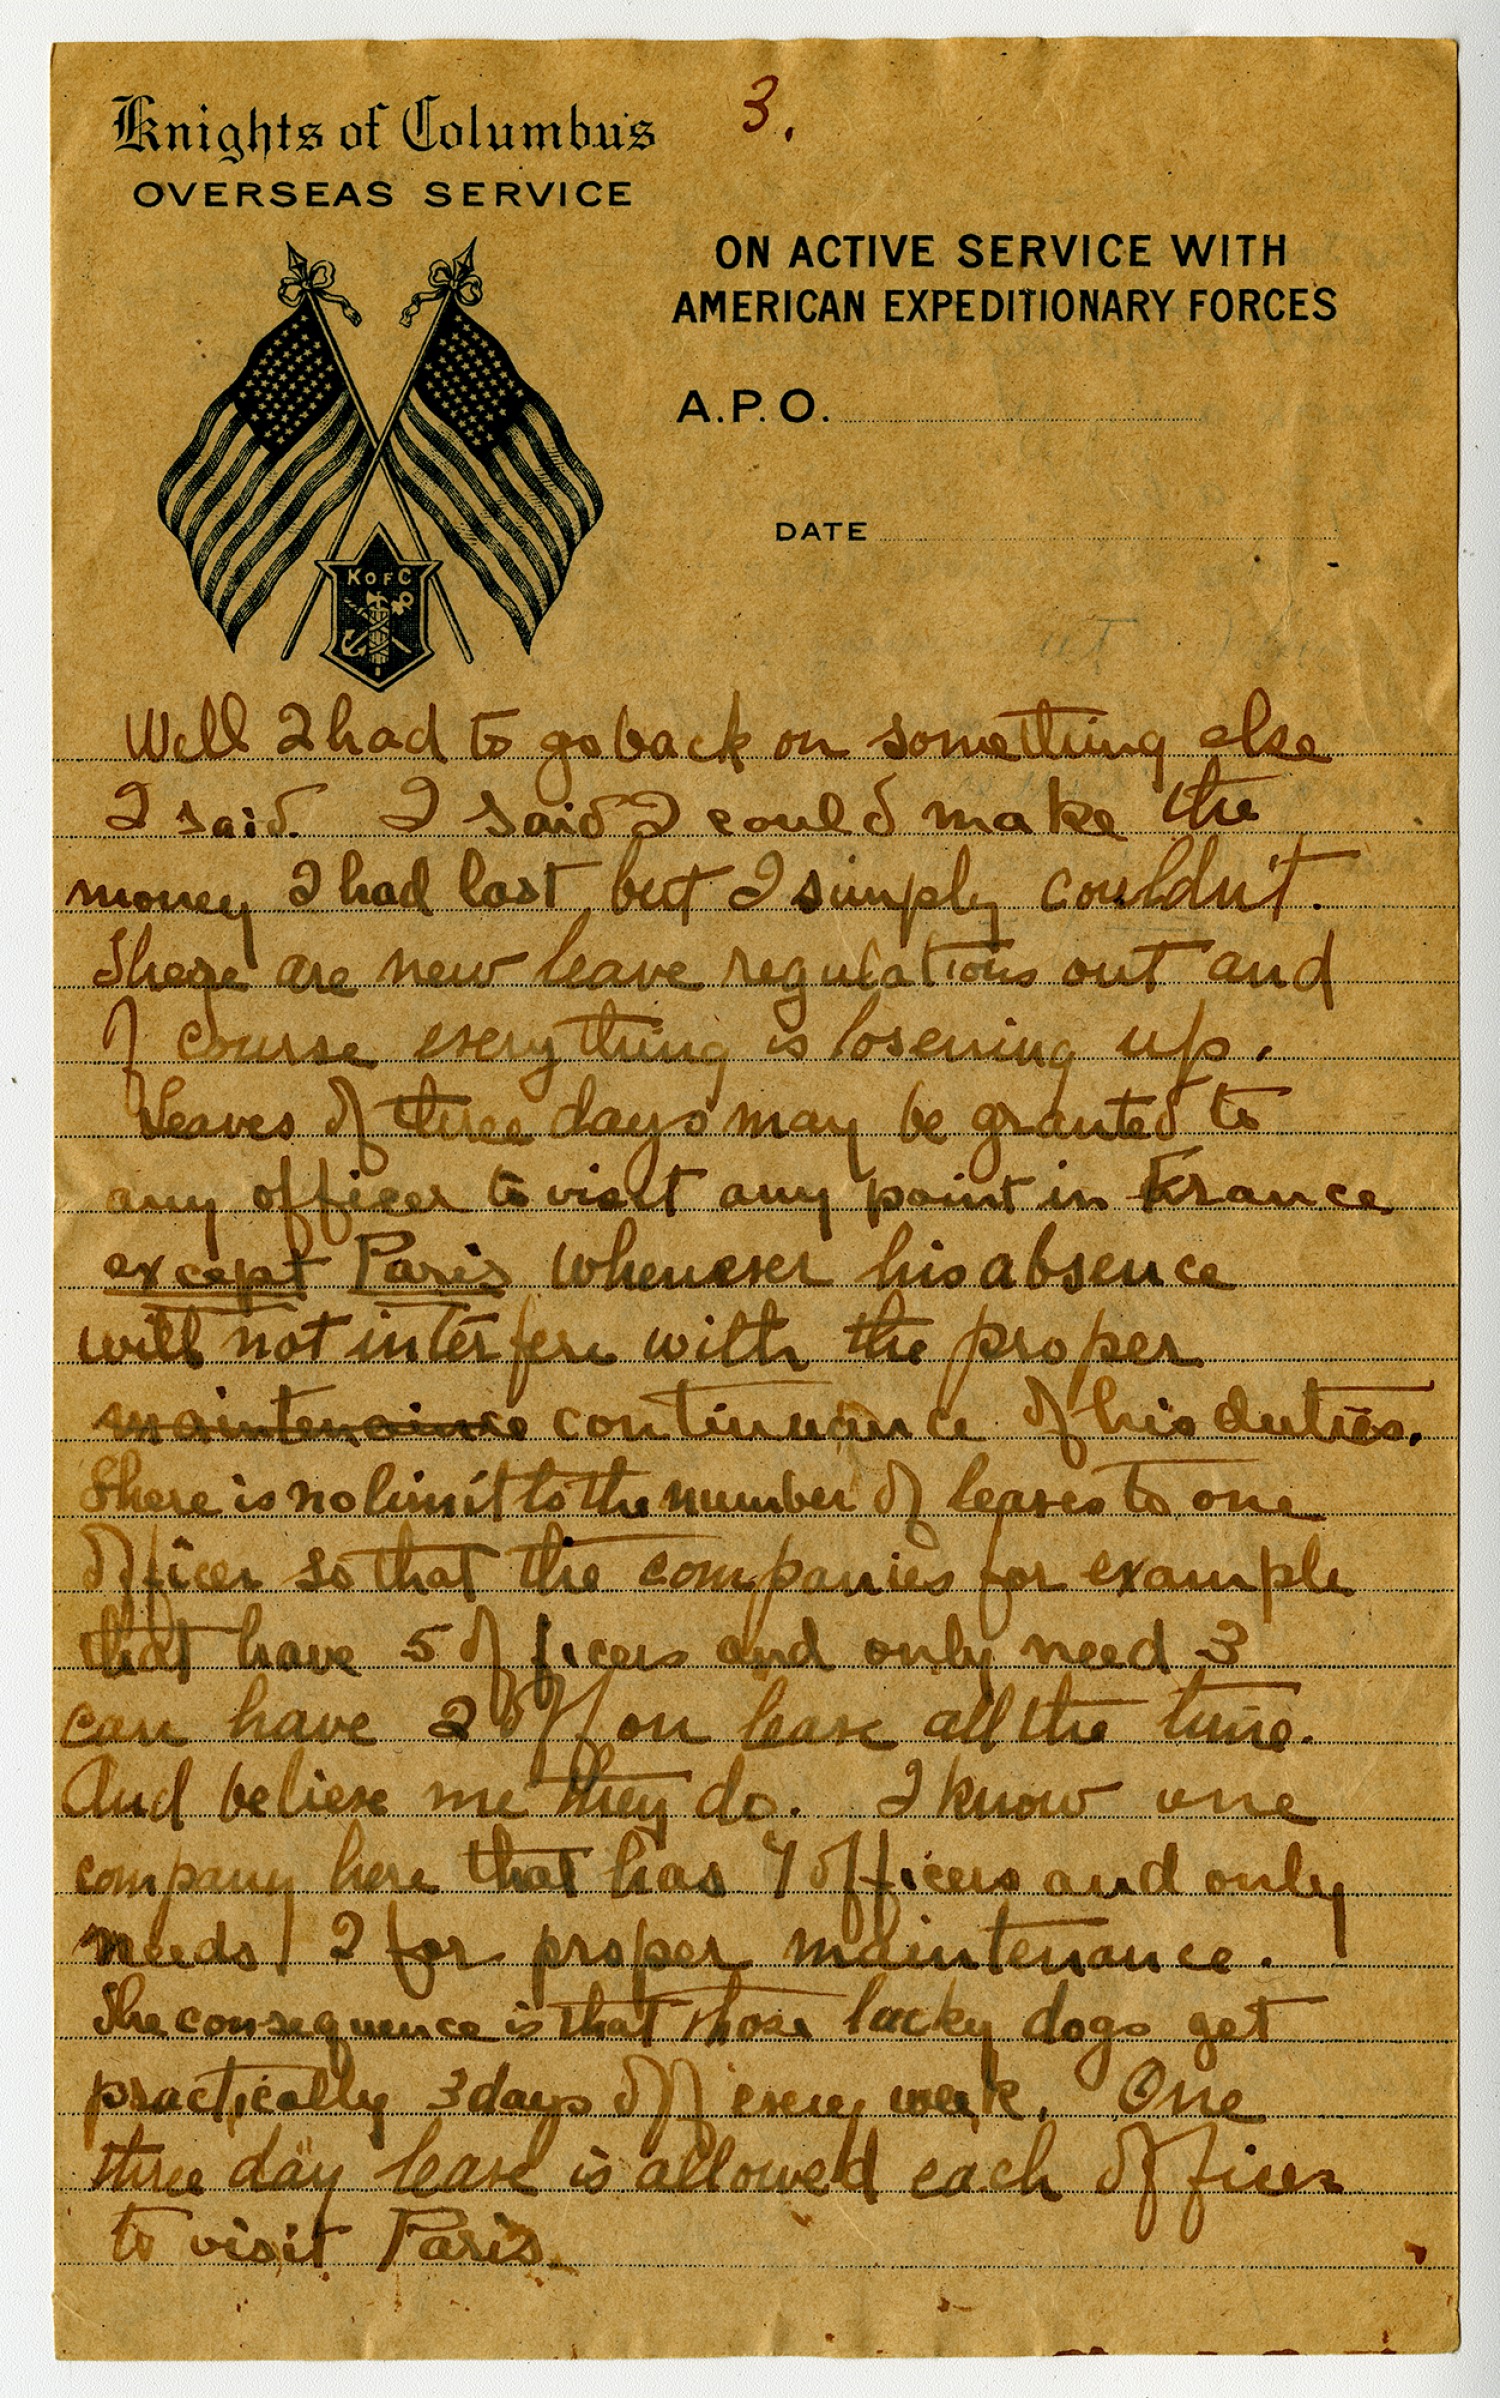 3.
Knights of Columbus
OVERSEAS SERVICE
ON ACTIVE SERVICE WITH
AMERICAN EXPEDITIONARY FORCES
A.P.O.
DATE
K OF C
Well I had to go back on something else
I said. I said I could make the
money I had last, but I simply couldn't.
There are new leave regulations out and
of course everything is losening up.
Leaves of three days may be granted to
any officer to visit any point in France
except Paris whenever his absence
will not interfere with the proper
maintenaince continuance of his duties.
There is no limit to the number of leaves to one
officer so that the companies for example
that have 5 officers and only need 3
can have 2 off on leave all the time.
And believe me they do. I know one
company here that has 7 officers and only
needs 2 for proper maintenance.
The consequence is that those lucky dogs get
practically 3 days off every week. One
three day leave is allowed each officer
to visit Paris.